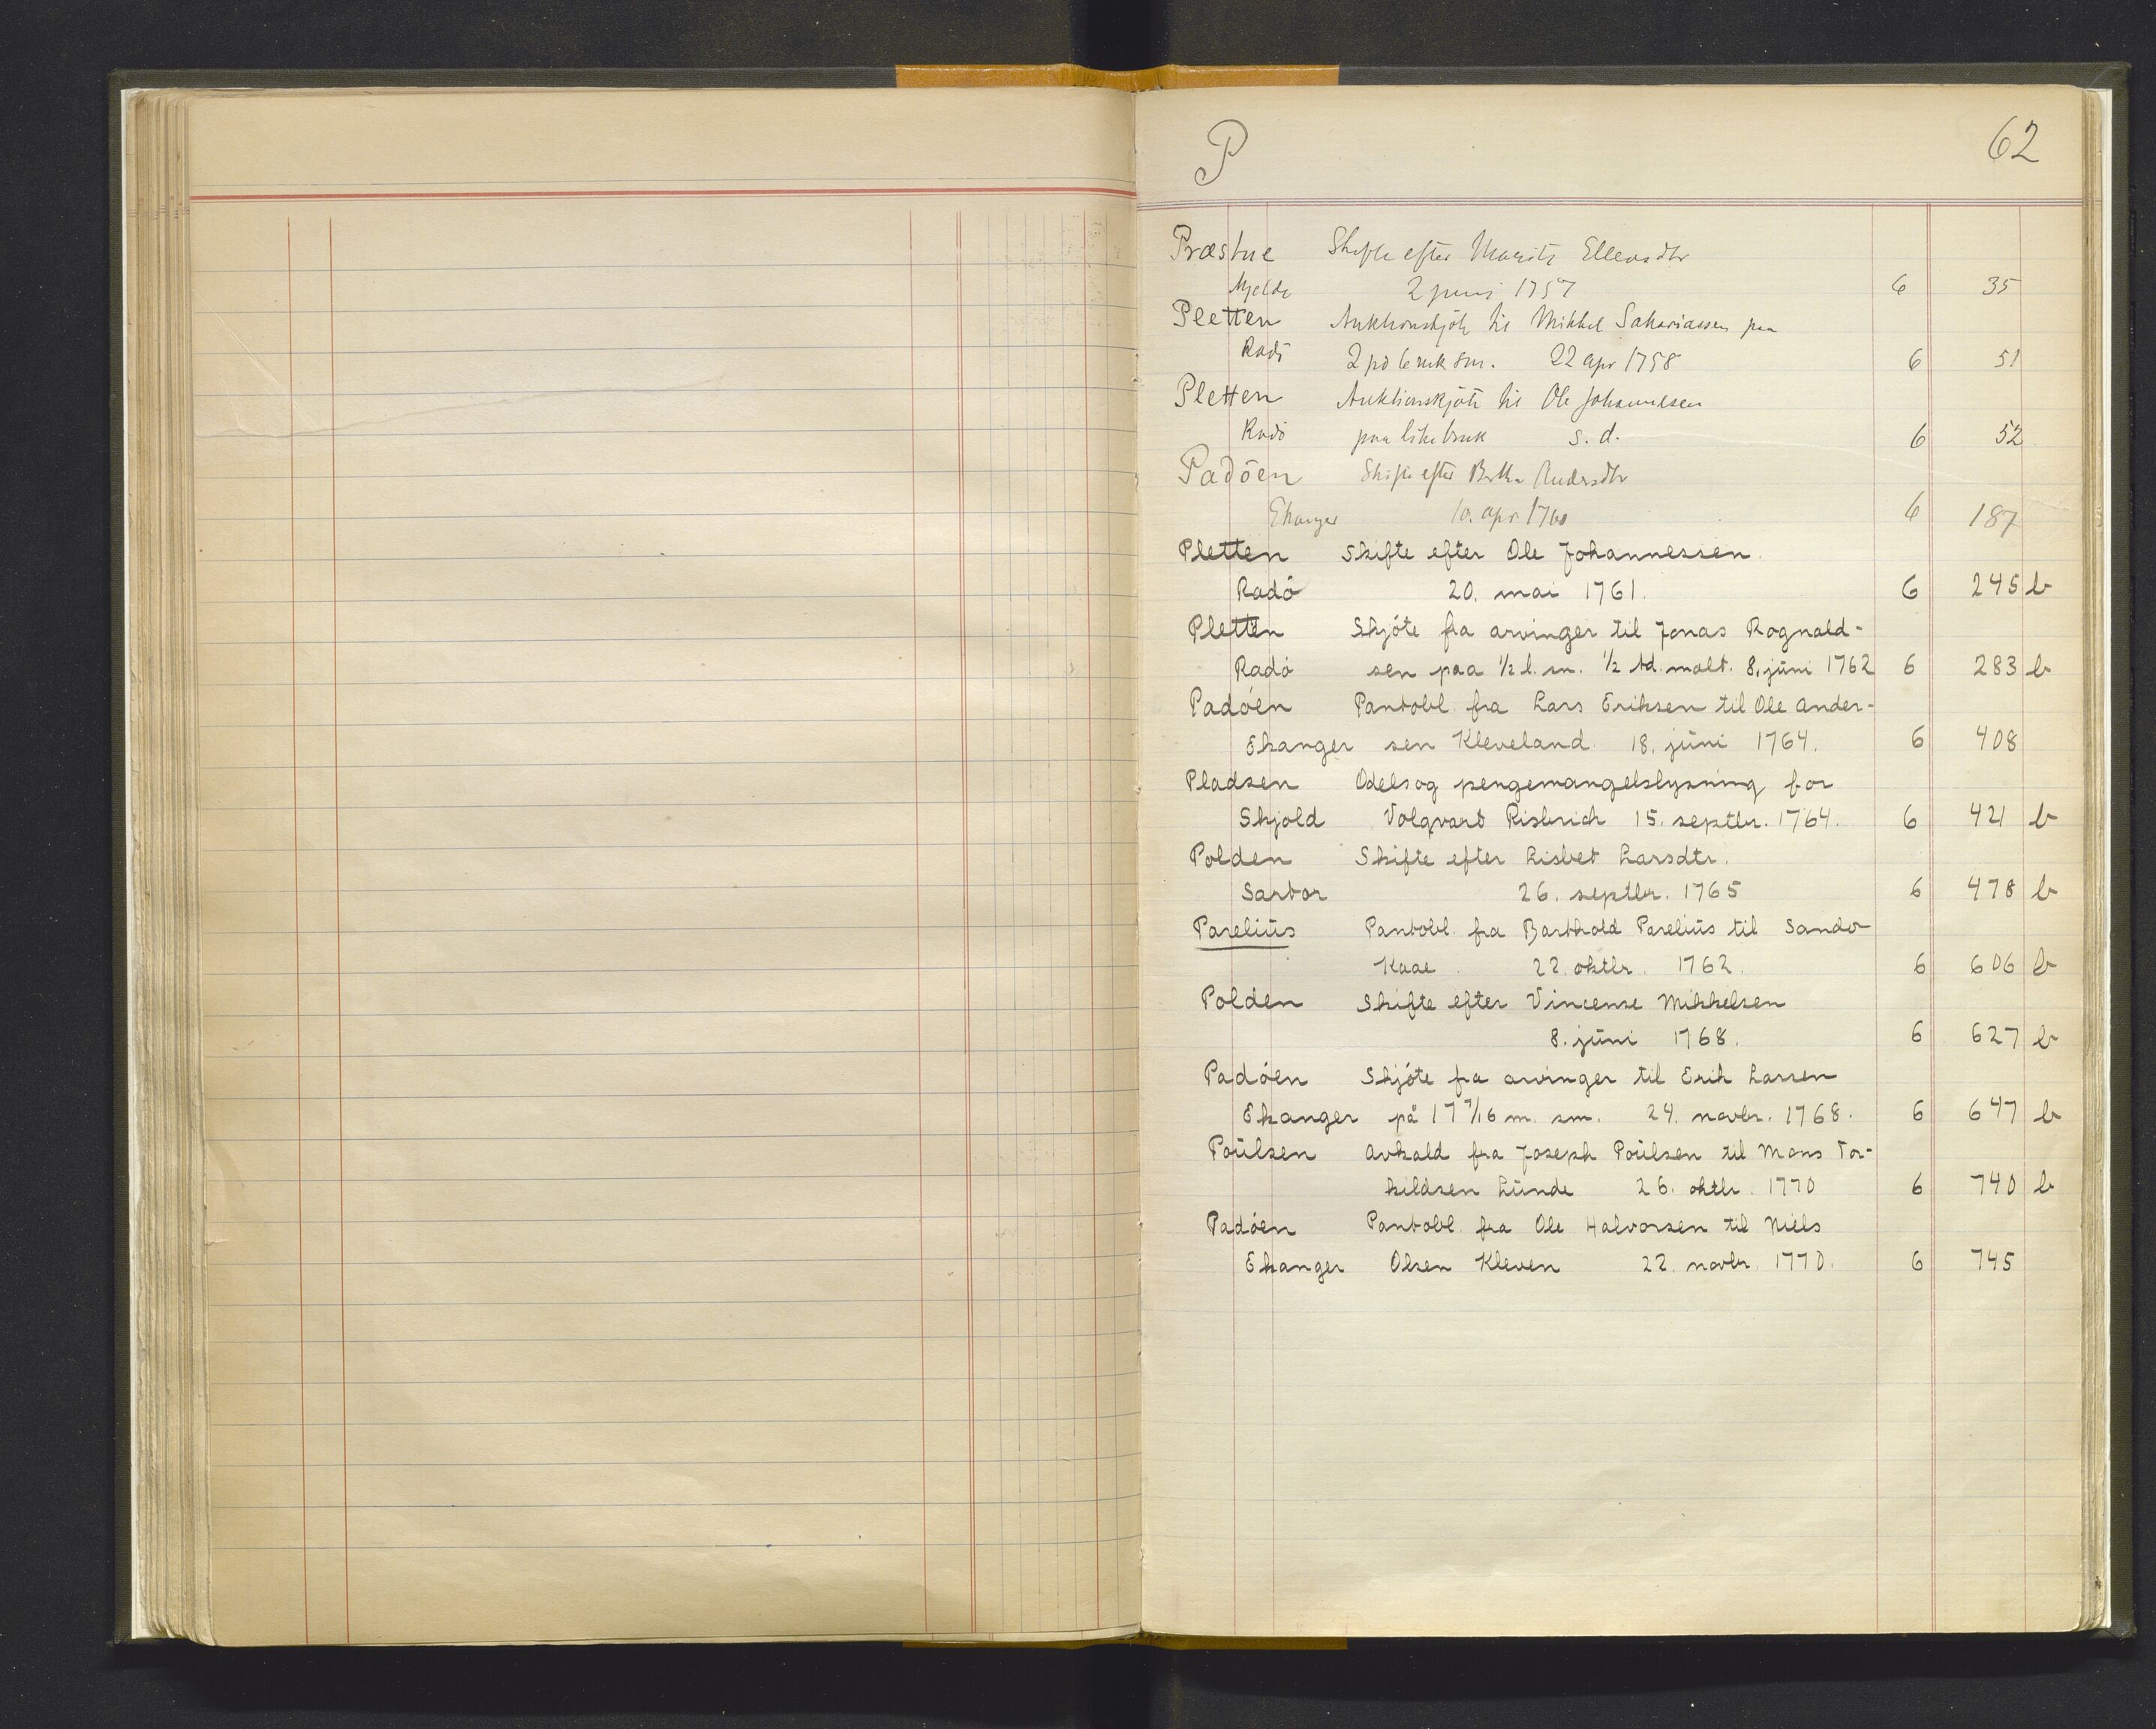 P 62
Præstue Skifte efter Marite Ellensdtr
Mjelde 2 juni 1757 6 35
Pletten Auktionskjöte til Mikkel Sakariassen paa
Radö 2 pd 6 mk sm. 22 apr 1758 6 51
Pletten Auktionskjöte til Ole Johannesen
Radö paa like bruk s. d. 6 52
Padöen Skifte efter Andersdtr
Ekanger 10. apr 1760 6 187
Pletten Skifte efter Ole Johannessen.
Radö 20. mai 1761. 6 245 b
Pletten Skjöte fra arvinger til Jonas Rognald-
Radö sen paa 1/2 l. sm. 1/2 td. malt. 8. juni 1762 6 283 b
Padöen Pantobl. fra Lars Eriksen til Ole Ander-
Ekanger sen Kleveland. 18. juni 1764. 6 408
Pladsen Odels og pengemangelslysning for
Skjold Volqvart Risbrich 15. septbr. 1764. 6 421 b
Polden Skifte efter Lisbet Larsdtr.
Sartor 26. septbr. 1765 6 478 b
Parelius Pantobl. fra Barthold Parelius til Sander
Kaae. 22. oktbr. 1762. 6 606 b
Polden Skifte efter Vincense Mikkelsen
8. juni 1768. 6 627 b
Padöen Skjöte fra arvinger til Erik Larsen
Ekanger på 17 7/16 m. sm. 24. novbr. 1768. 6 647 b
Poulsen Avkald fra Joseph Poulsen til Mons Tor-
kildsen Lunde 26. oktbr. 1770 6 740 b
Padöen Pantobl. fra Ole Halvorsen til Niels
Ekanger Olsen Kleven 22. novbr. 1770. 6 745